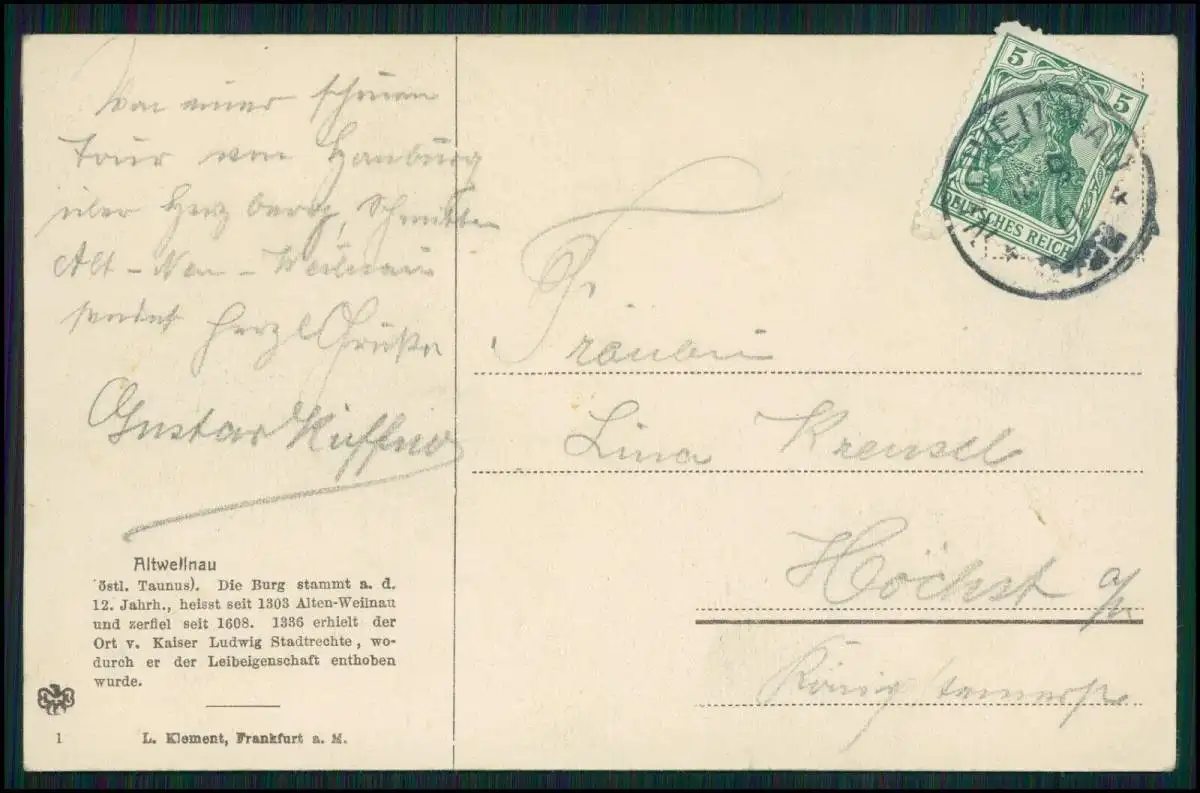 Von einer schönen
Tour von Homburg
über Herzberg, Schmitten
Alt - Neu - Weilnau
sendet herzl. Grüße
Gustav
Altweilnau
östl. Taunus). Die Burg stammt a. d.
12. Jahrh., heisst seit 1303 Alten-Weilnau
und zerfiel seit 1608. 1336 erhielt der
Ort v. Kaiser Ludwig Stadtrechte, wo-
durch er der Leibeigenschaft enthoben
wurde.
1
L. Klement, Frankfurt a. M.
5 5
DEUTSCHES REICH
Fräulein
Lina Krensel
Höchst a/M